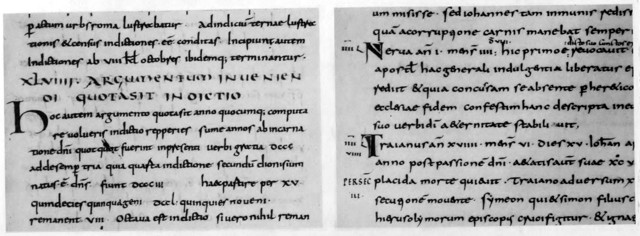 pactum urbs roma lustrabatur Ad indicium ternae lustra
tionis & census indictiones eē conditas. Incipiunt autem
Indictiones ab VIII kł octobres ibidemq; terminantur.
XLVIIII. ARGUMENTUM INUENIEN
DI QUOTA SIT INDICTIO
Hoc autem argumento quota sit anno quocumq; computa
re volueris indictio repperies sume annos ab incarna
tione dnī quotquot fuerint in presenti verbi gratia DCCC
adde semper tria quia quarta indictione secundū dionisium
natus ē dns̄ fiunt DCCCIII partire per XV.
quindecies quinquageni DCCL. quinquies noveni.
remanent VIII Octava est indictio si vero nihil reman
um misisse. sed iohannes tam immunis redisse
qua a corruptione carnis manebat semper i
Nerva an̄ I. men̄s IIII; hic primo revocavit
apos hac generali indulgentia liberatur e
rediit & quia concussam se absente p heretico
ecclesiae fidem confestim hanc descripta in
suo verbi dī aeternitate stabilivit,
Traianus an̄ XVIIII. men̄s VI. dies XV. Iohan̄ a
anno post passionē dnī. aetatis autē suae XC
PERSEC placida morte quievit. Traiano adversum x
III. secutionē movente. Symeon qui & simon filius c
hierusolymorum episcopus crucifigitur. & igna